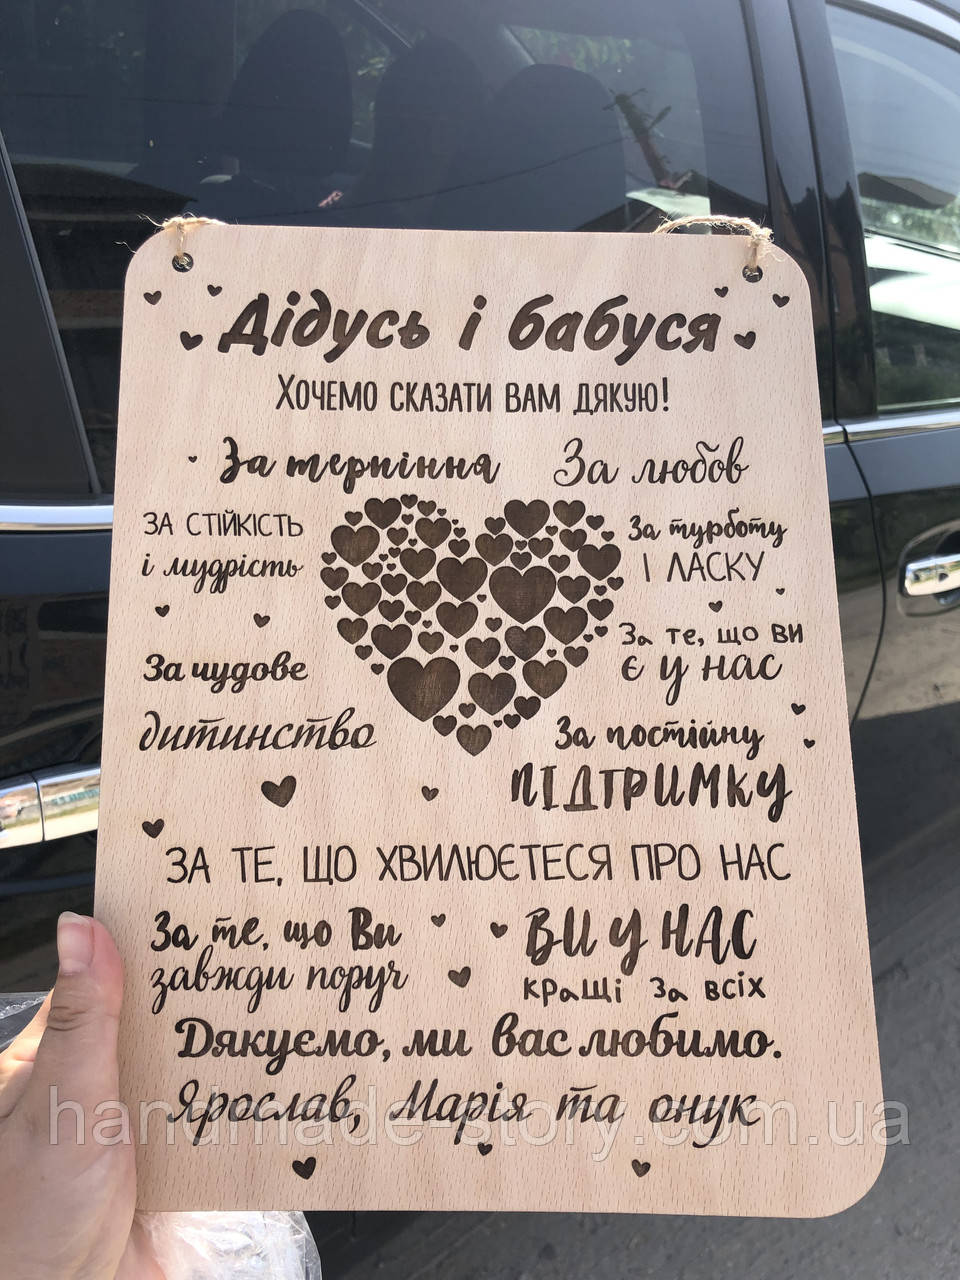 Дідусь і бабуся
Хочемо сказати вам дякую!
За терпіння
За любов
За стійкість
і мудрість
За турботу
і ласку
За чудове
дитинство
За те, що ви
є у нас
За постійну
підтримку
За те, що хвилюєтеся про нас
За те, що Ви
завжди поруч
Ви у нас
кращі за всіх
Дякуємо, ми вас любимо.
Ярослав, Марія та онук
handmade-story.com.ua